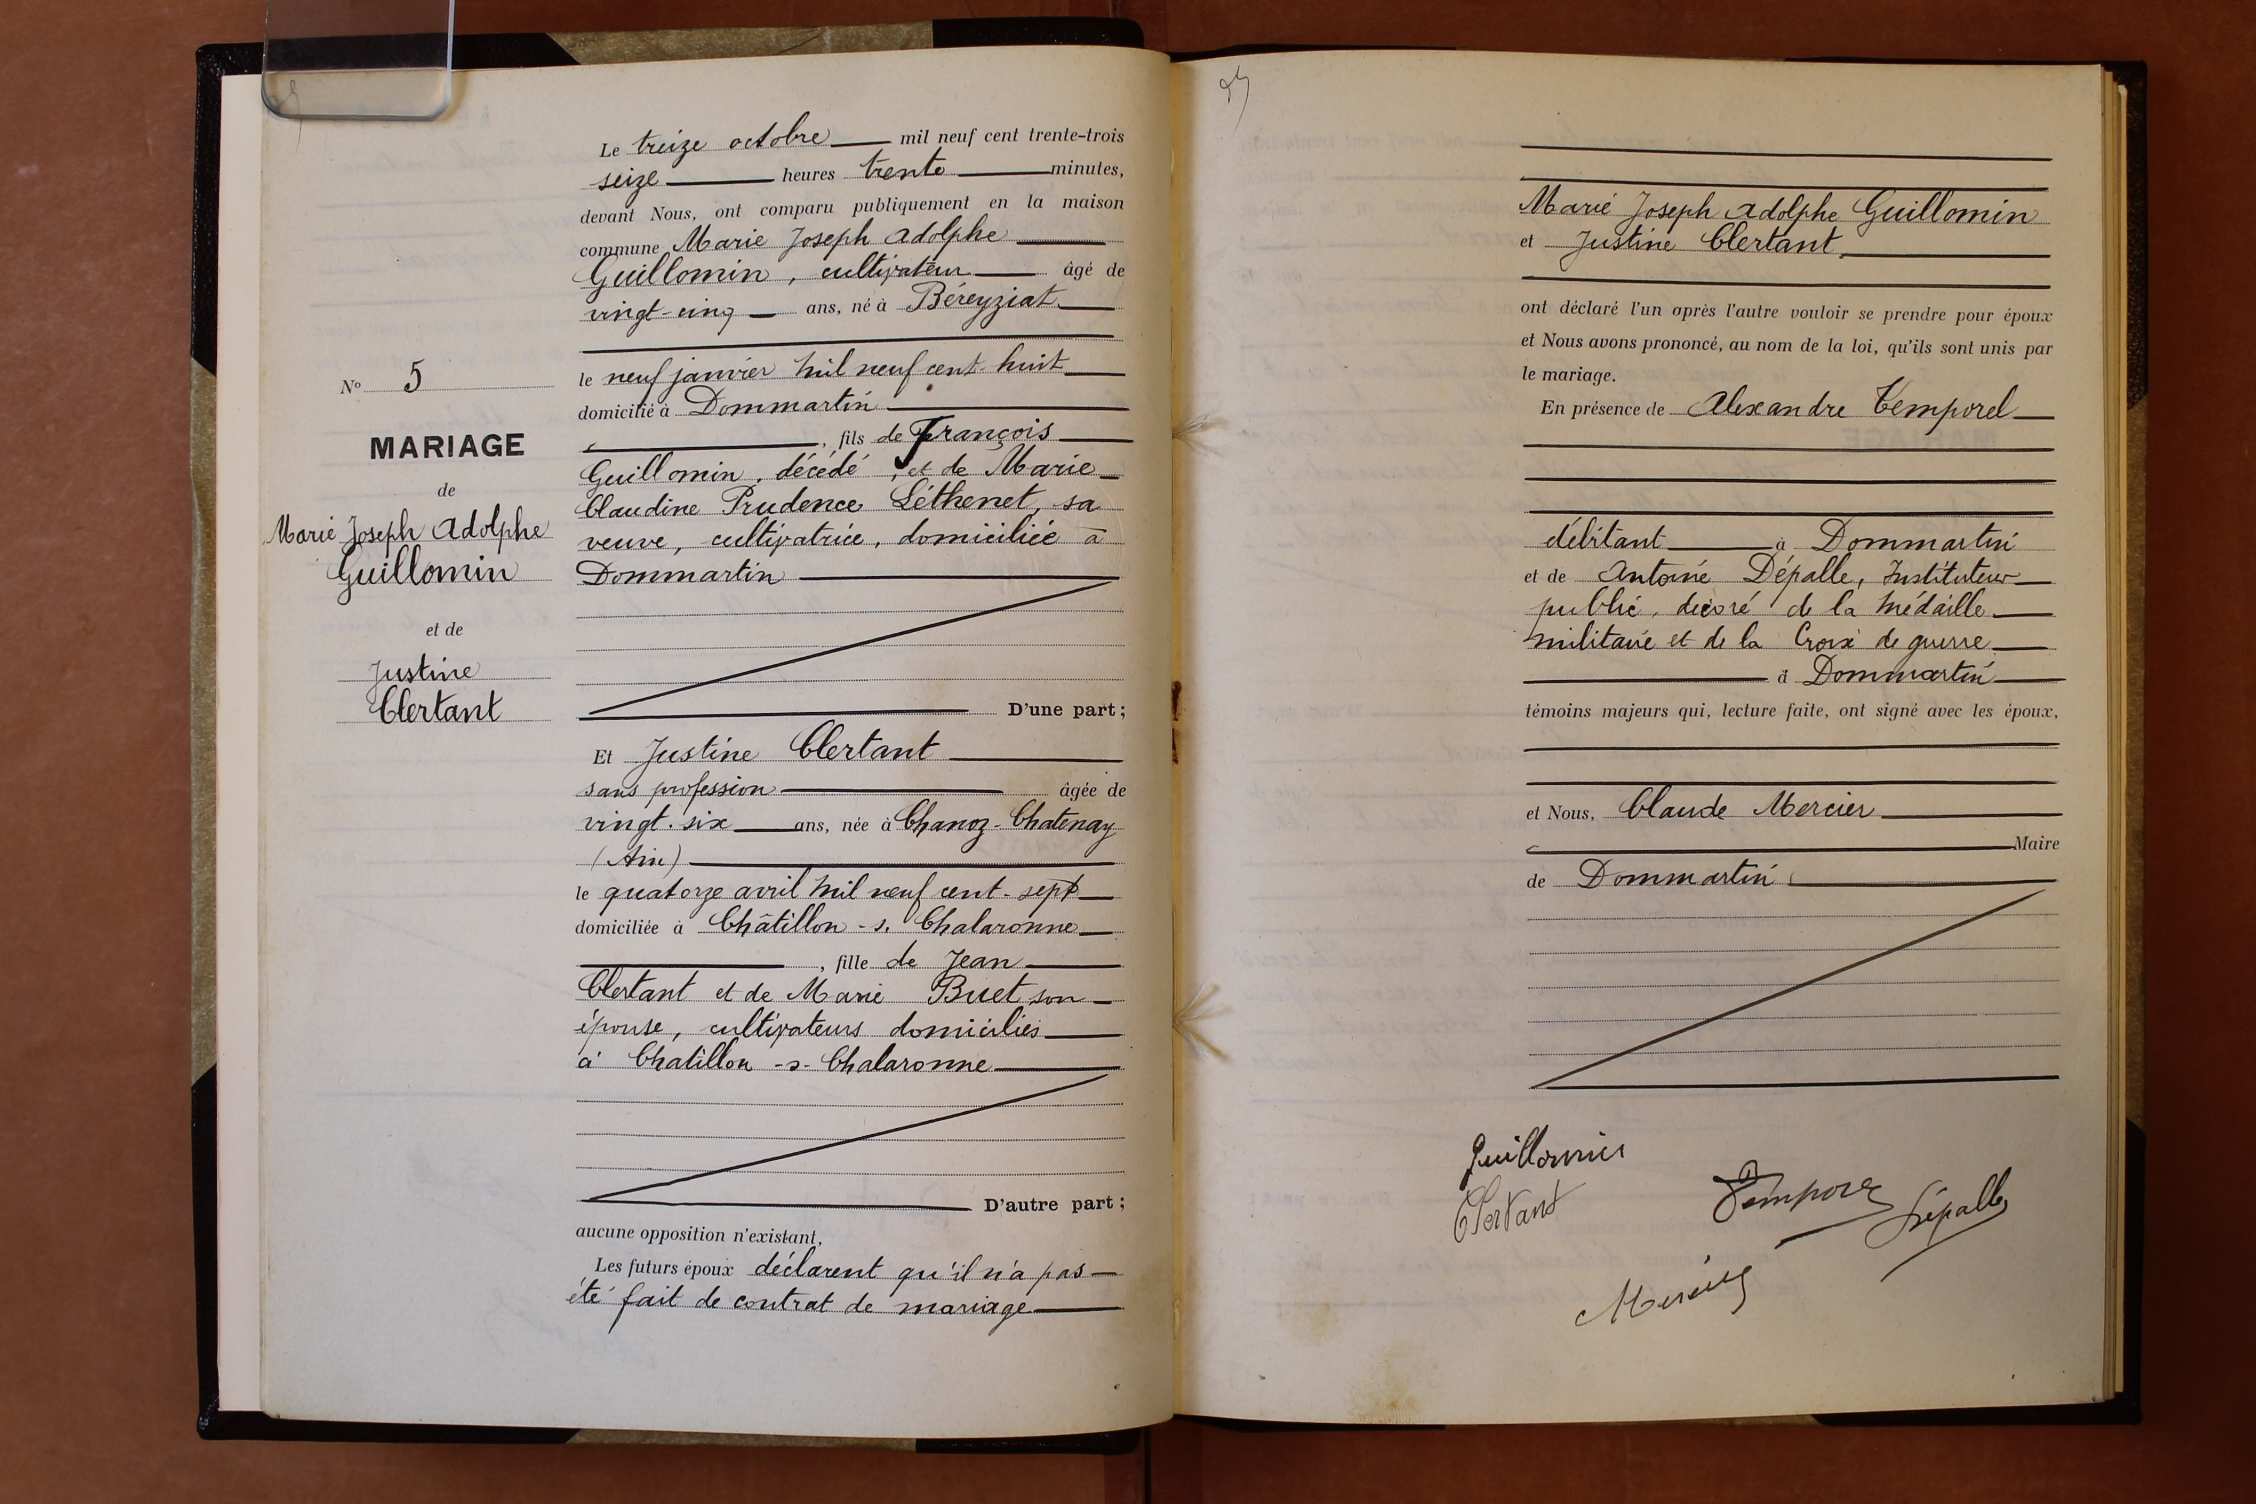 Le treize octobre mil neuf cent trente-trois
seize heures trente minutes,
devant Nous, ont comparu publiquement en la maison
commune Marie Joseph Adolphe
Guillomin, cultivateur âgé de
vingt-cinq ans, né à Béreyziat
le neuf janvier mil neuf cent huit
domicilié à Dommartin
, fils de François
Guillomin, décédé, et de Marie
Claudine Prudence Léthenet, sa
veuve, cultivatrice, domiciliée à
Dommartin
D'une part;
Nº 5
MARIAGE
de
Marie Joseph Adolphe
Guillomin
et de
Justine
Clertant
Et Justine Clertant
sans profession âgée de
vingt-six ans, née à Chanoz-Chatenay
(Ain)
le quatorze avril mil neuf cent-sept
domiciliée à Châtillon-s. Chalaronne
, fille de Jean
Clertant et de Marie Buet, son
épouse, cultivateurs domiciliés
à Chatillon-s-Chalaronne
D'autre part;
aucune opposition n'existant,
Les futurs époux déclarent qu'il n'a pas
été fait de contrat de mariage
Marie Joseph Adolphe Guillomin
et Justine Clertant,
ont déclaré l'un après l'autre vouloir se prendre pour époux
et Nous avons prononcé, au nom de la loi, qu'ils sont unis par
le mariage.
En présence de Alexandre Temporel
débitant à Dommartin
et de Antoine Dépalle, Instituteur
public, décoré de la Médaille
militaire et de la Croix de guerre
à Dommartin
témoins majeurs qui, lecture faite, ont signé avec les époux,
et Nous, Claude Mercier
Maire
de Dommartin
Guillomin
Clertant
Temporel
Dépalle
Mercier